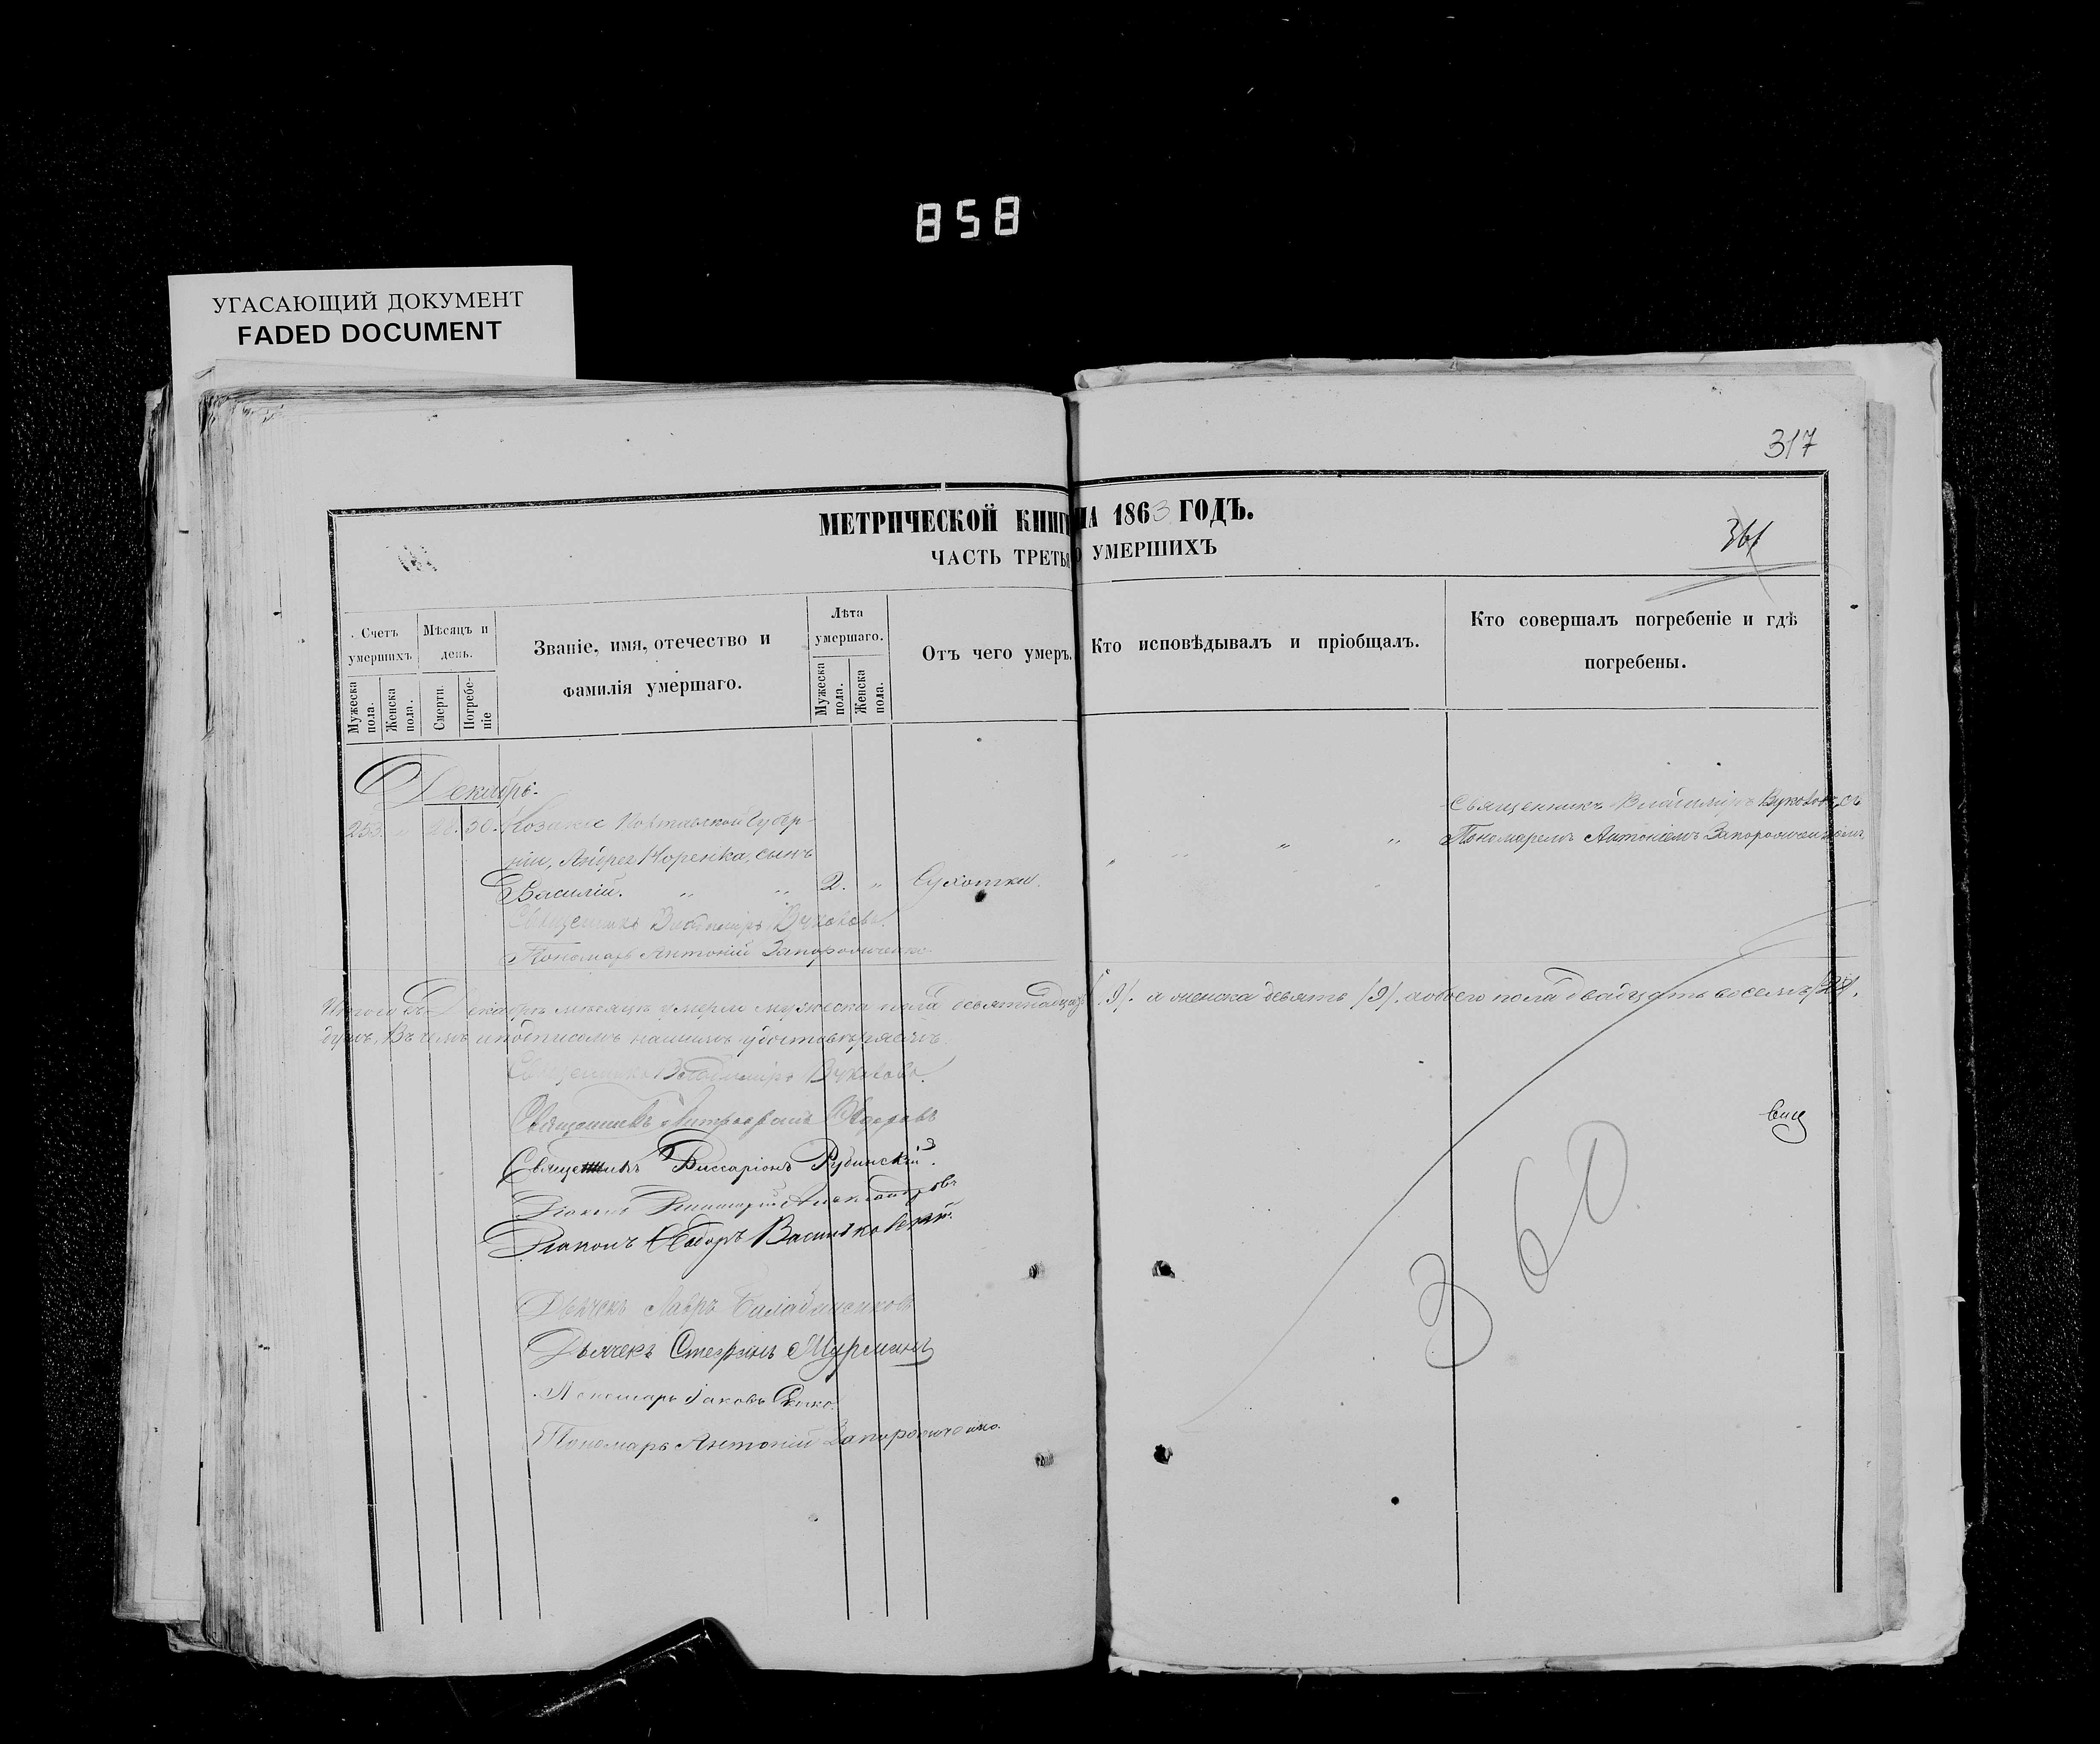 858
УГАСАЮЩИЙ ДОКУМЕНТ
FADED DOCUMENT
317
МЕТРИЧЕСКОЙ КНИГ НА 1863 ГОДЪ.
361
ЧАСТЬ ТРЕТЬЯ О УМЕРШИХЪ
Счетъ умершихъ
Мужеска пола.
Женска пола.
Мѣсяцъ и день.
Смерти.
Погребеніе
Званіе, имя, отечество и фамилія умершаго.
Лѣта умершаго.
Мужеска пола.
Женска пола.
Отъ чего умеръ.
Кто исповѣдывалъ и пріобщалъ.
Кто совершалъ погребеніе и гдѣ погребены.
Декабрь.
253. „ 28. 30. Козака Полтавской Губер-
ніи, Андрея Коренка, сынъ
Василій. „ „ 2. „ Сухотки. „ „ „ „
Священникъ Владиміръ Вуковъ, съ
Пономаремъ Антоніемъ Запорожченкомъ,
Священникъ Владиміръ Вуковъ.
Пономарь Антоній Запорожченко.
Итого въ Декабрѣ мѣсяцѣ умерло мужеска пола девятнадцать /19/. а женска девять /9/. а обоего пола двадцать восемь /28/.
душъ. Въ чемъ и подписомъ нашимъ удостовѣряемъ
Священникъ Владиміръ Вуковъ.
Священникъ Митрофанъ
Священникъ Виссаріонъ Рубинскій.
Діаконъ Александровъ
Діаконъ Ѳедоръ Васильковскій.
Дьячекъ Лавръ
Дьячекъ Стефанъ Мурманъ
Пономарь Іаковъ
Пономарь Антоній Запорожченко.
360